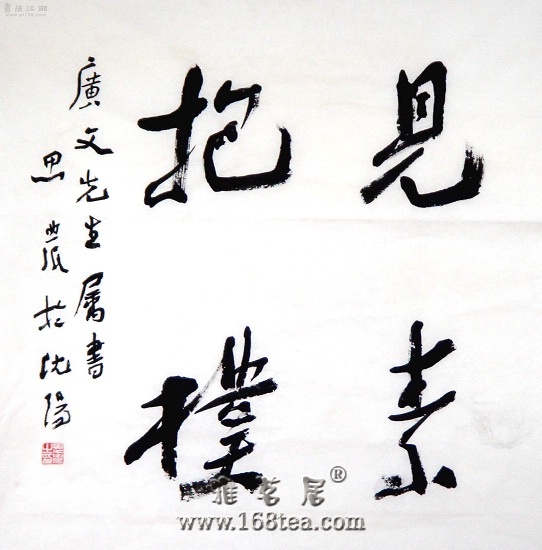 見素
抱樸
廣文先生属書
思農於沈陽
雅茗居®
www.168tea.com